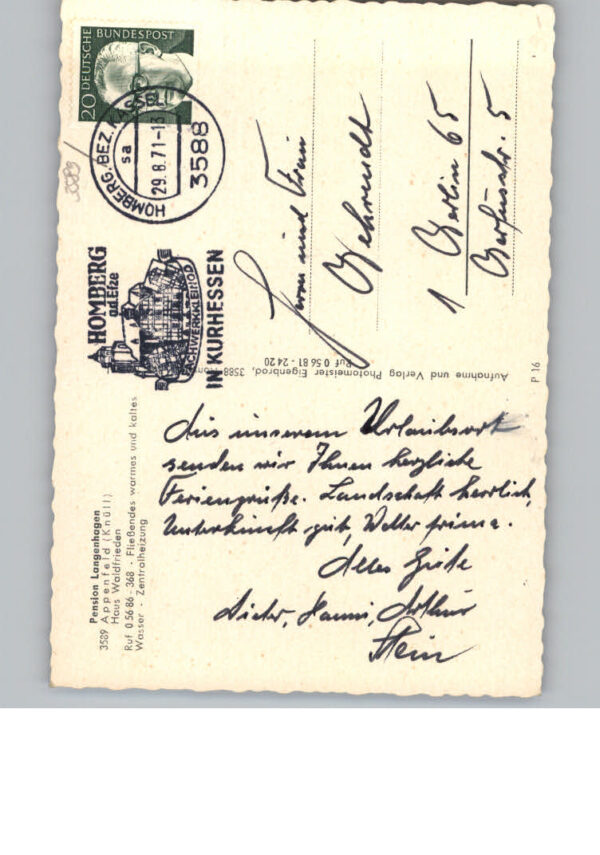 20 DEUTSCHE BUNDESPOST
HOMBERG, BEZ. KASSEL 1
sa
29.8.71-13
3588
HOMBERG
a.d. Efze
FACHWERKKLEINOD
IN KURHESSEN
3589
Herrn und Frau
Behrendt
1 Berlin 65
5
Aufnahme und Verlag Photomeister Eigenbrod, 3588
Ruf 0 56 81 - 24 20
P 16
Pension Langenhagen
3589 Appenfeld (Knüll)
Haus Waldfrieden
Ruf 0 56 86 - 368 · Fließendes warmes und kaltes
Wasser · Zentralheizung
Aus unserem Urlaubsort
senden wir Ihnen herzliche
Feriengrüße. Landschaft herrlich,
Unterkunft gut, Wetter prima.
Alles Gute
Dieter, Hanni, Arthur
Stein